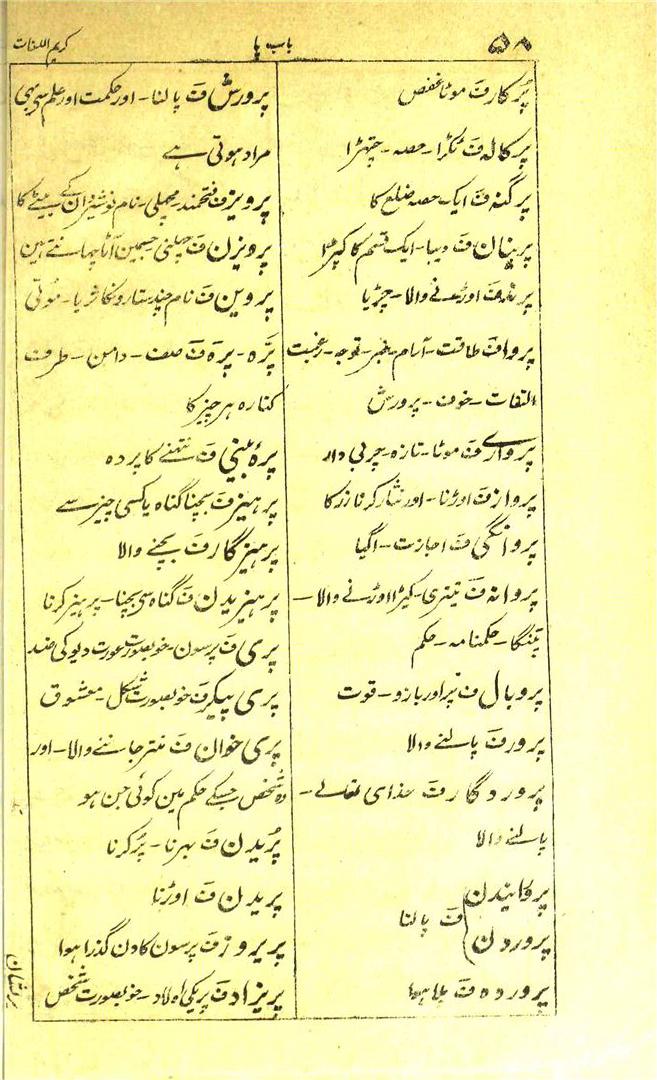 ۵۸ باب پا کریم اللغات
پُرکار ف موٹا غفص
پرکالہ ف ٹکڑا - حصہ - چتھڑا
پرگنہ ف ایک حصہ ضلع کا
پرنیان ف دیبا - ایک قسم کا کپڑا
پرندہ ف اوڑھنے والا - چڑیا
پروا ف طاقت - آرام - خبر - توجہ - رغبت
التفات - خوف - پرورش
پرواری ف موٹا - تازہ - چربی دار
پرواز ف اوڑنا - اور نثار کرنا زر کا
پروانگی ف اجازت - اگیا
پروانہ ف تیتری - کیڑا اوڑنے والا -
پتنگا - حکمنامہ - حکم
پروبال ف پَر اور بازو - قوت
پرور ف پالنے والا
پروردگار ف خدای تعالے -
پالنے والا
پروانیدن
پروردن ف پالنا
پروردہ ف پلا ہوا
پرورش ف پالنا - اور حکمت اور علم سی بھی
مراد ہوتی ہے
پرویز ف فتحمند - مچھلی - نام نوشیروان کے بیٹے کا
پرویزن ف چھلنی جسمین آٹا چھانتے ہین
پروین ف نام چند ستارونکا ثریا - موتی
پرّہ - پرہ ف صف - دامن - طرف
کنارہ ہر چیز کا
پرۂ بینی ف نتھنے کا پردہ
پرہیز ف بچنا گناہ یا کسی چیز سے
پرہیزگار ف بچنے والا
پرہیزیدن ف گناہ سی بچنا - پرہیز کرنا
پری ف پرسون - خوبصورت عورت دیو کی ضد
پری پیکر ف خوبصورت شکل - معشوق
پری خوان ف منتر جاننے والا - اور
وہ شخص جسکے حکم مین کوئی جن ہو
پُریدن ف بھرنا - پُر کرنا
پریدن ف اوڑنا
پریروز ف پرسون کا دن گذرا ہوا
پریزاد ف پریکی اولاد - خوبصورت شخص
پریشان